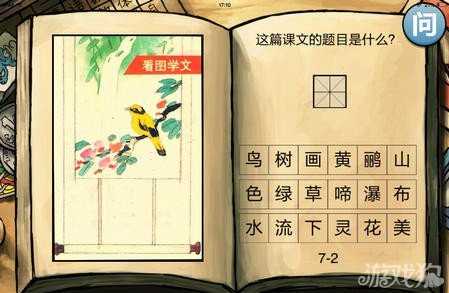 17:10
问
看图学文
这篇课文的题目是什么?
鸟树画黄鹂山
色绿草啼瀑布
水流下灵花美
7-2
游戏狗